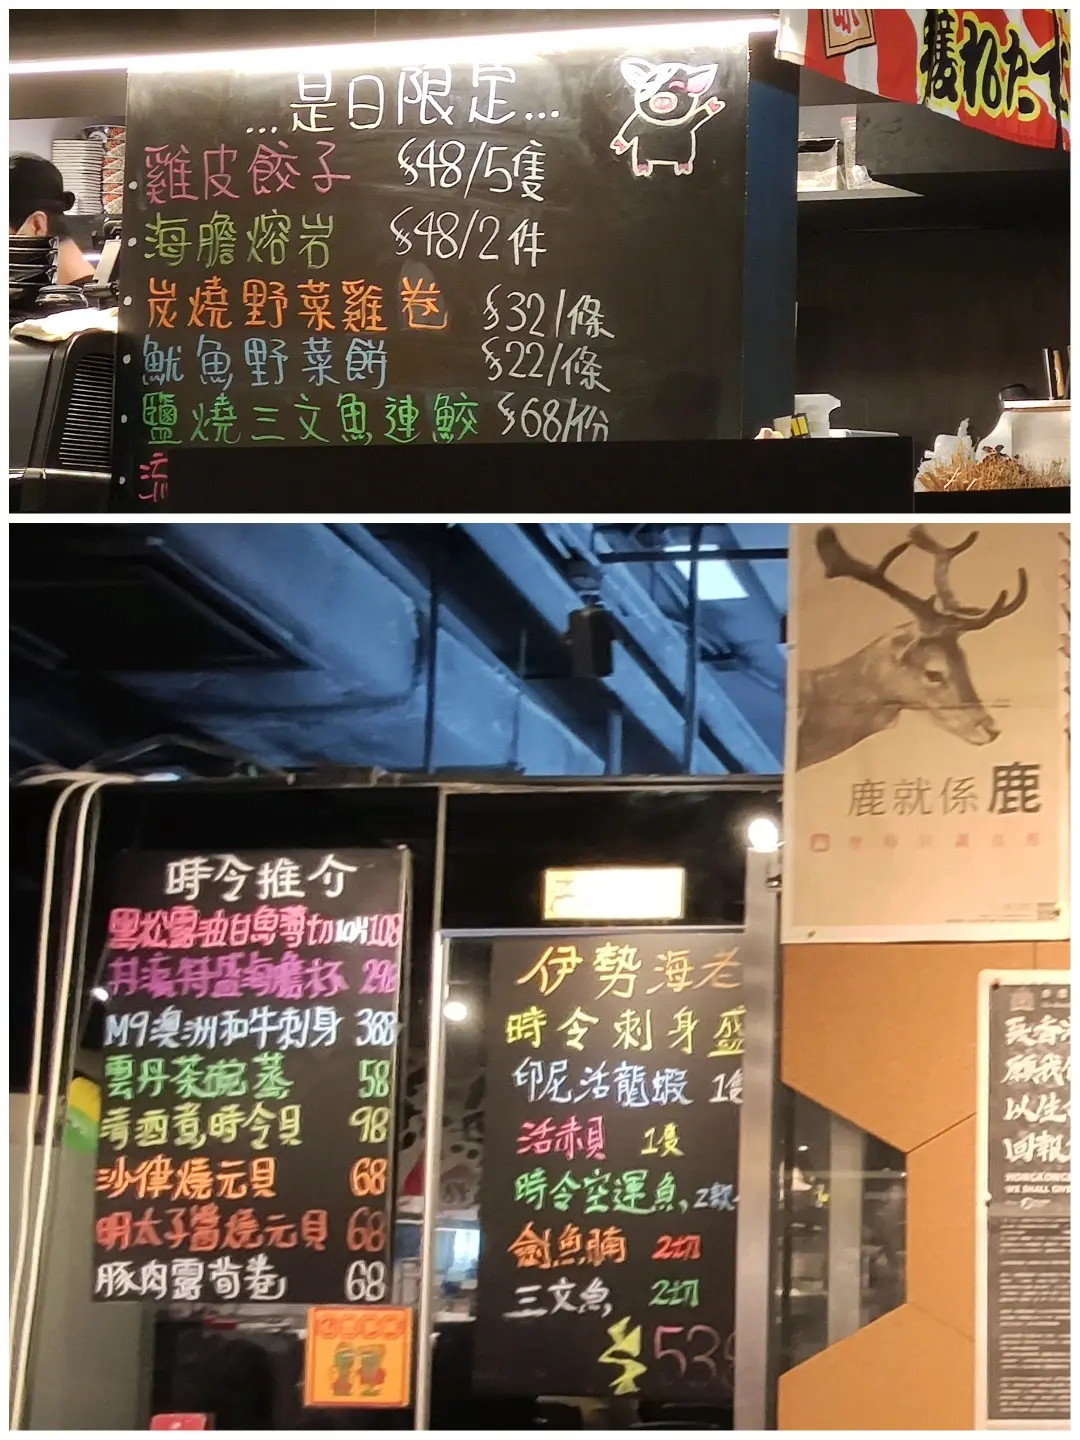 獲れたて
...是日限定...
雞皮餃子 $48/5隻
海膽熔岩 $48/2件
炭燒野菜雞卷 $32/條
魷魚野菜餅 $22/條
鹽燒三文魚連鮫 $68/份
鹿就係鹿
時令推介
黑松露油甘魚薄切10片108
海膽杯 298
M9澳洲和牛刺身 388
雲丹茶碗蒸 58
清酒煮時令貝 98
沙律燒元貝 68
明太子醬燒元貝 68
豚肉露荀卷 68
伊勢海老
時令刺身盛
印尼活龍蝦 1隻
活赤貝 1隻
時令空運魚 2款
劍魚腩 2切
三文魚 2切
$538
回報
HONGKONG
WE SHALL GIVE